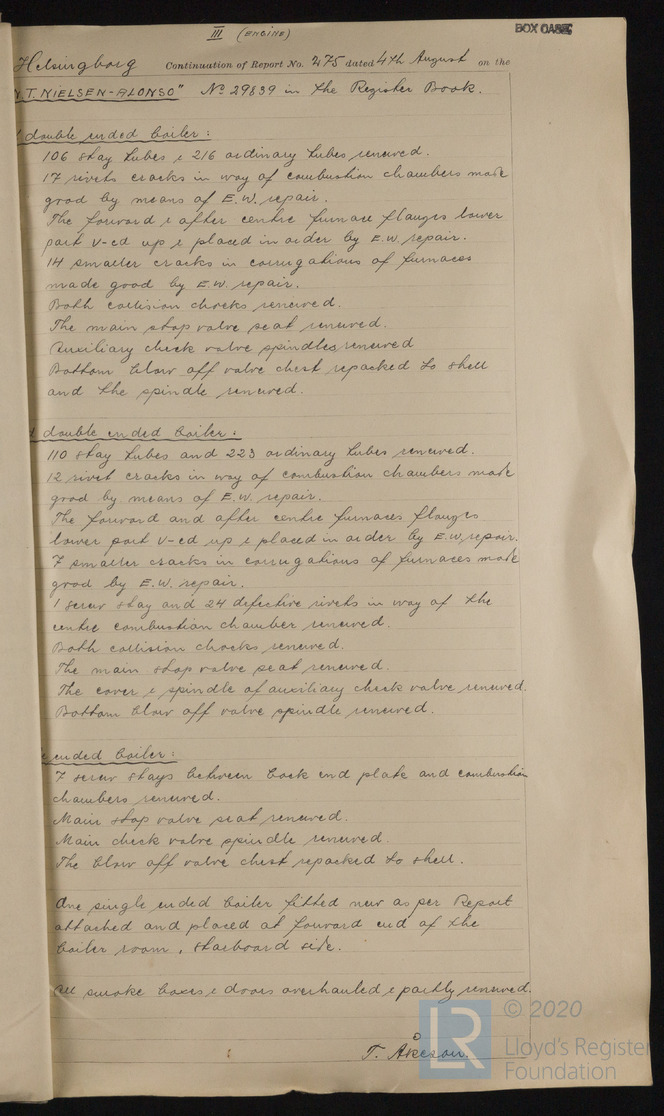 III (ENGINE)
BOX
Helsingborg Continuation of Report No. 275 dated 4th August on the
N.T. NIELSEN-ALONSO" No 29839 in the Register Book.
double ended boiler:
106 stay tubes & 216 ordinary tubes renewed.
17 rivets cracks in way of combustion chambers made
good by means of E.W. repair.
The forward & after centre furnace flanges lower
part V-ed up & placed in order by E.W. repair.
14 smaller cracks in corrugations of furnaces
made good by E.W. repair.
Both collision chocks renewed.
The main stop valve seat renewed.
Auxiliary check valve spindles renewed
Bottom blow off valve chest repacked to shell
and the spindle renewed.
double ended boiler:
110 stay tubes and 223 ordinary tubes renewed.
12 rivet cracks in way of combustion chambers made
good by means of E.W. repair.
The forward and after centre furnaces flanges
lower part V-ed up & placed in order by E.W. repair.
7 smaller cracks in corrugations of furnaces made
good by E.W. repair.
1 screw stay and 24 defective rivets in way of the
centre combustion chamber renewed.
Both collision chocks renewed.
The main stop valve seat renewed.
The cover & spindle of auxiliary check valve renewed.
Bottom blow off valve spindle renewed.
ended boiler:
7 screw stays between back end plate and combustion
chambers renewed.
Main stop valve seat renewed.
Main check valve spindle renewed.
The blow off valve chest repacked to shell.
One single ended boiler fitted new as per Report
attached and placed at forward end of the
boiler room, starboard side.
All smoke boxes & doors overhauled & partly renewed.
T. Åkeson.
LR © 2020
Lloyd's Register
Foundation